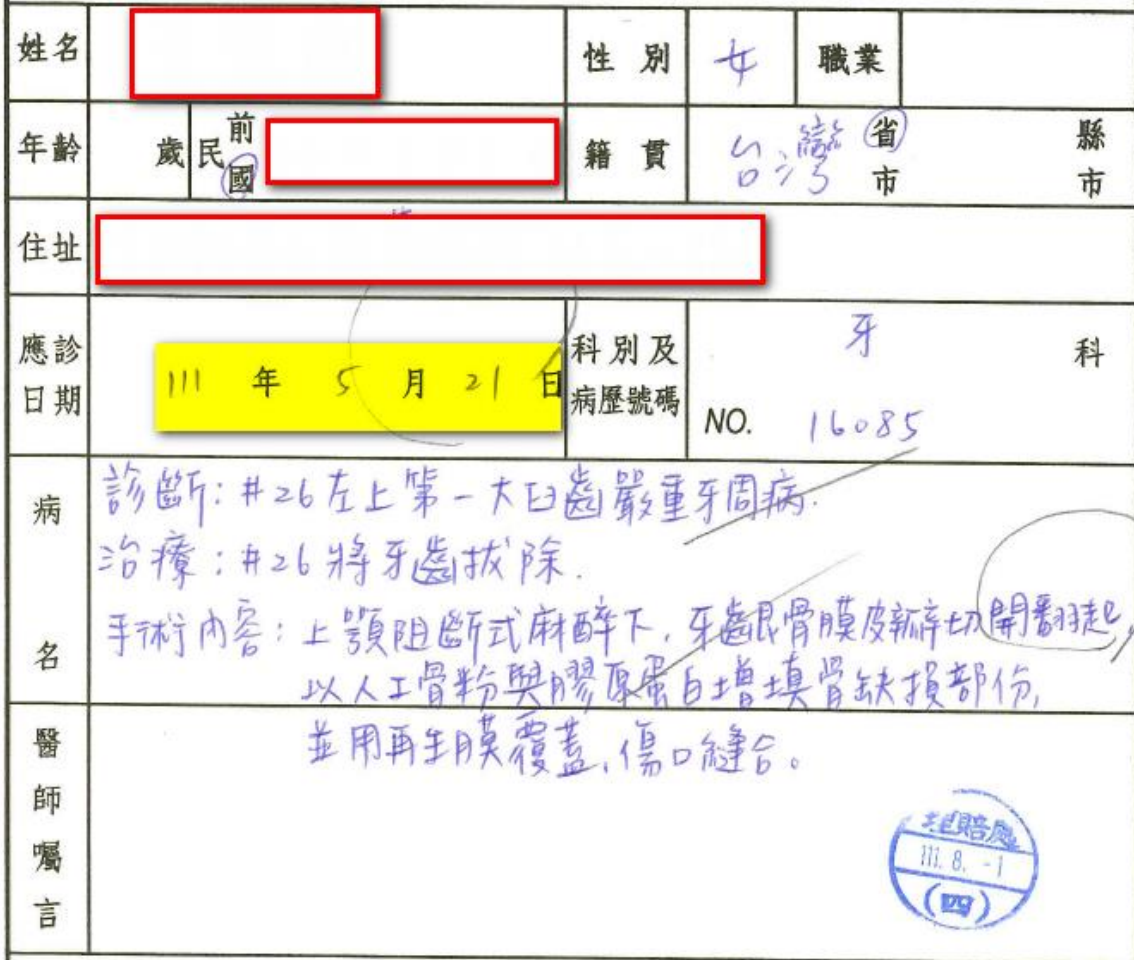 姓名 性別 女 職業
年齡 歲 民 前 國 籍貫 台灣 省 市 縣 市
住址
應診日期 111 年 5 月 21 日 科別及病歷號碼 牙 科 NO. 16085
病名
診斷:#26左上第一大臼齒嚴重牙周病.
治療:#26將牙齒拔除.
手術內容:上顎阻斷式麻醉下,牙齦骨膜皮瓣切開翻起,
以人工骨粉與膠原蛋白增填骨缺損部份,
並用再生膜覆蓋,傷口縫合。
醫師囑言
理賠處
111. 8. -1
(四)